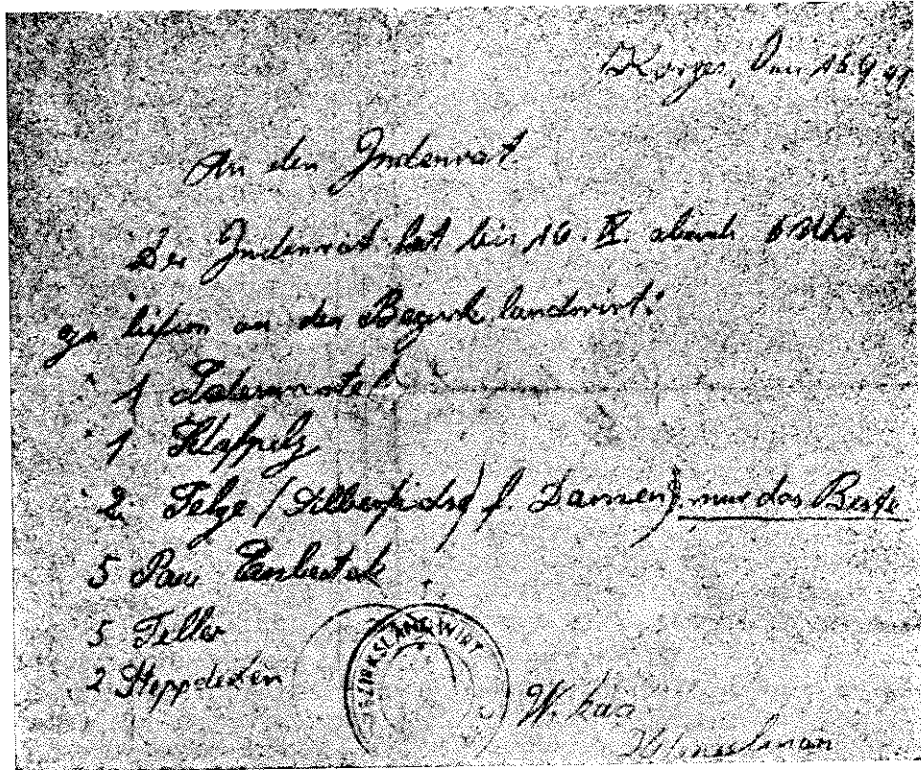 Korzec, den 15.9.41
An den Judenrat
Der Judenrat hat bis 16. IX. abends 6 Uhr
zu liefern an den Bezirk landwirt:
1 Ledermantel
1
2 Pelze (Silberfuchs) f. Damen) nur das Beste
5 Paar
5 Teller
2 Steppdecken
BEZIRKSLANDWIRT